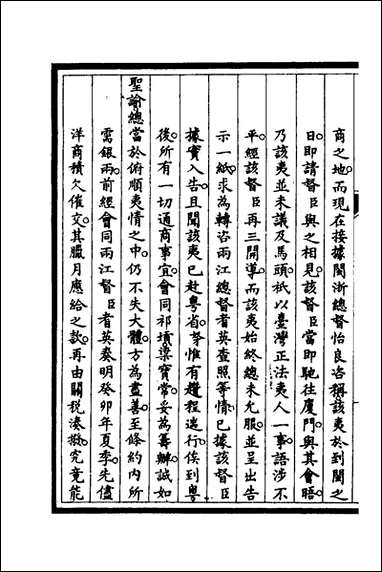 商之地而現在接據閩浙總督怡良咨稱該夷於到閩之
日即請督臣與之相見該督臣當即馳往廈門與其會晤
乃該夷並未議及馬頭祇以臺灣正法夷人一事語涉不
平經該督臣再三開導而該夷始終總未允服並呈出告
示一紙求為轉咨兩江總督耆英查照等情已據該督臣
據實入告且聞該夷已赴粵省奴才惟有趲程遄行俟到粵
後所有一切通商事宜會同祁𡎴梁寶常妥為籌辦誠如
聖諭總當於俯順夷情之中仍不失大體方為盡善至條約內所
需銀兩前經會同兩江督臣耆英奏明癸卯年夏季先儘
洋商積欠催交其臘月應給之款再由關稅湊撥究竟能